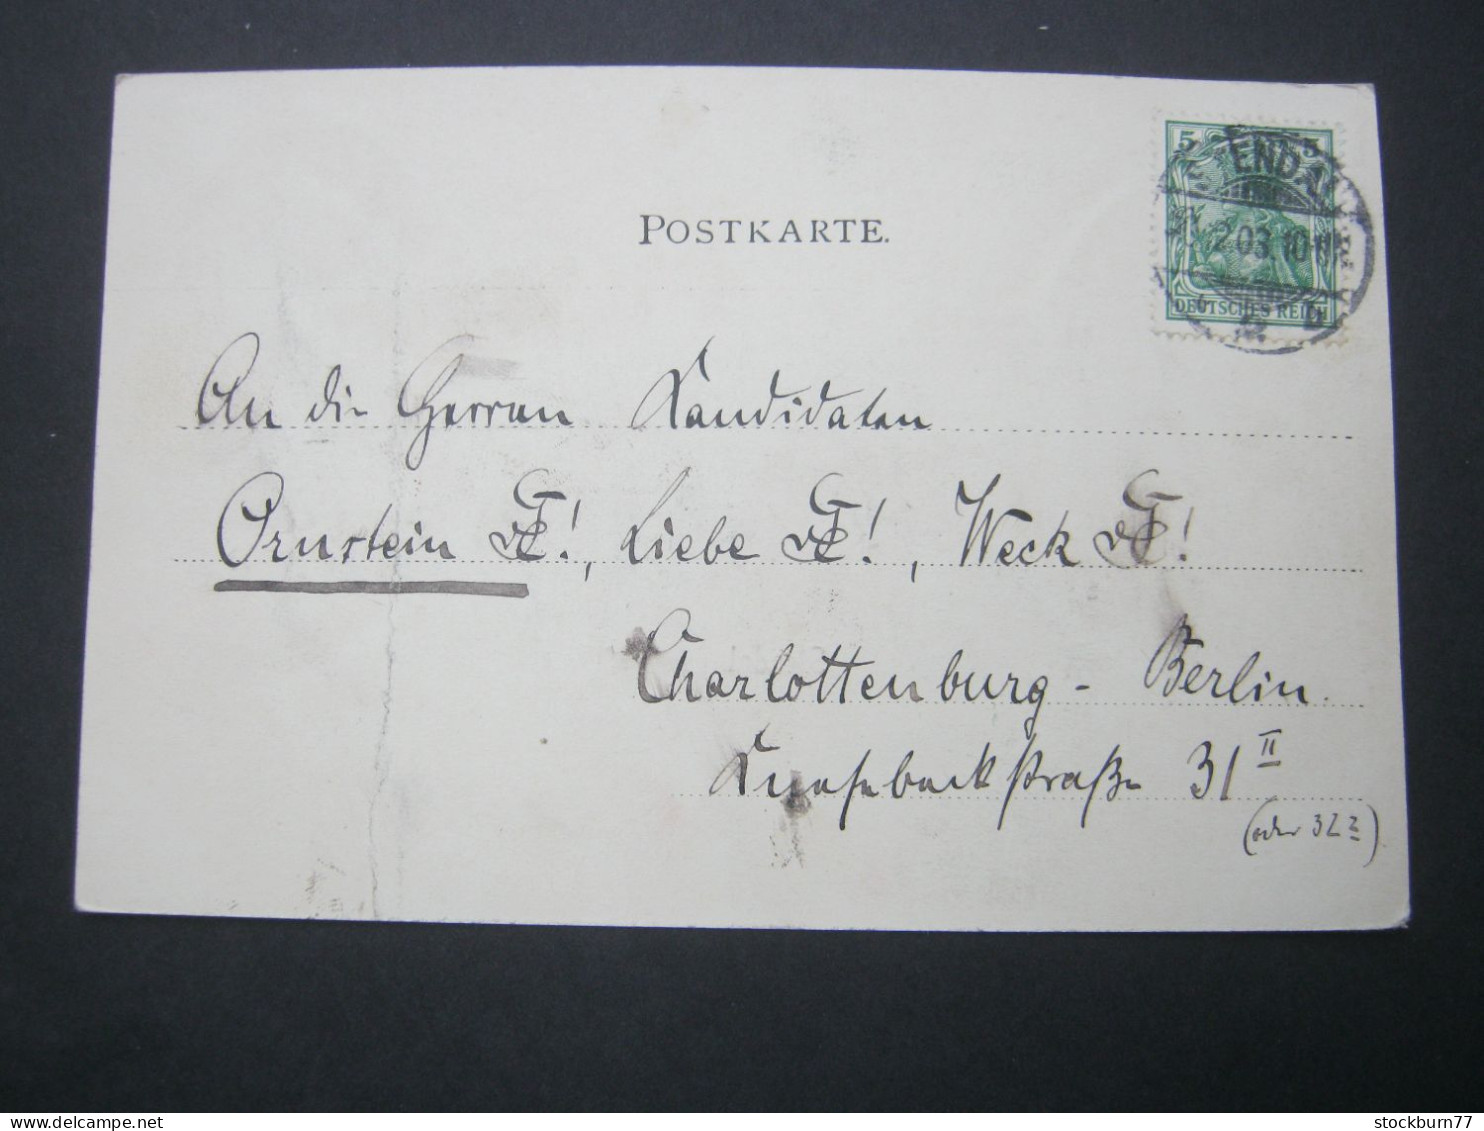 POSTKARTE.
5 5
2.03.10
DEUTSCHES REICH
b
An die Herren Kandidaten
Ornstein !, Liebe !, Weck !
Charlottenburg - Berlin.
Knesebeckstraße 31 II
(oder 32 2)
stockburn77